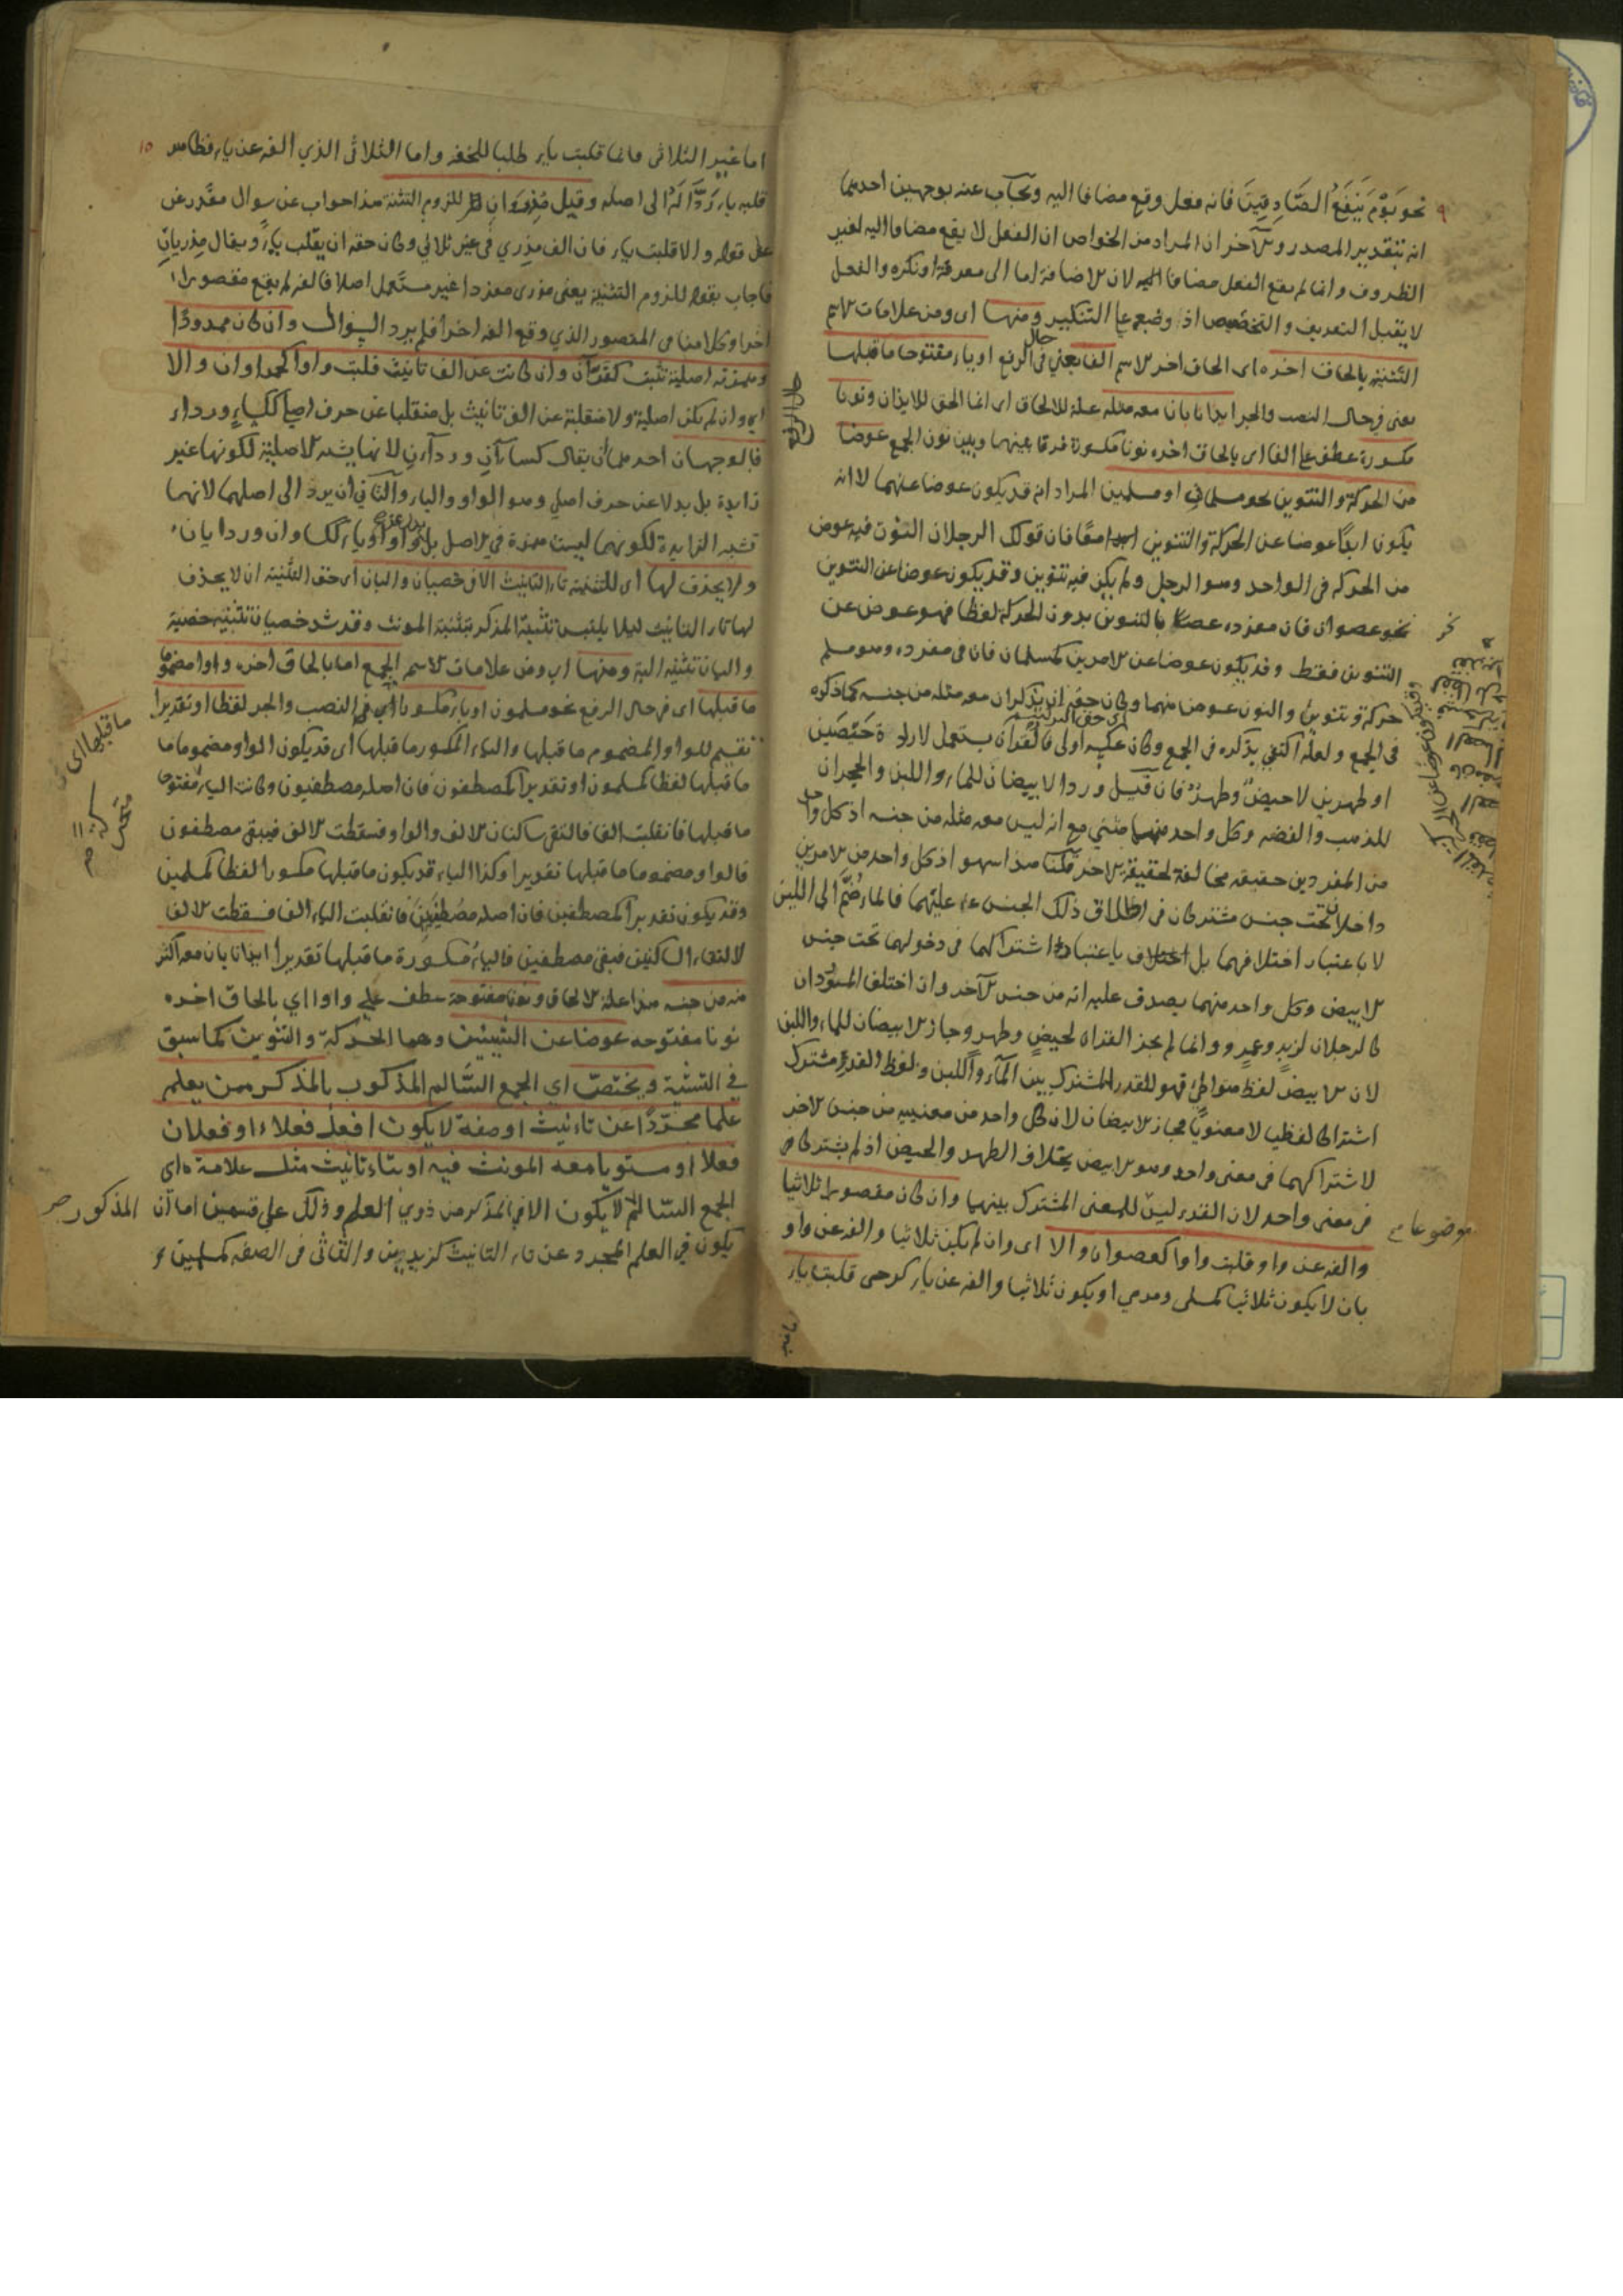 نحو يَوْمَ يَنْفَعُ الصَّادِقِينَ فانه فعل وقع مضافا اليه ويجاب عنه بوجهين احدهما
انه بتقدير المصدر والآخر ان المراد من الخواص ان الفعل لا يقع مضافا اليه لغير
الظروف وانما لم يقع الفعل مضافا اليه لان الاضافة اما الى معرفة او نكرة والفعل
لا يقبل التعريف والتخصيص اذ وضعه على التنكير ومنها اى ومن علامات الاسم
التثنية بالحاق اخره اى الحاق اخر الاسم الفا يعني فى حال الرفع او ياء مفتوحا ما قبلها
يعنى في حال النصب والجر ايذانا بان معه مثله علة للالحاق اى انما الحق للايذان ونونا
مكسورة عطف على الفا اى بالحاق اخره نونا مكسورة فرقا بينها وبين نون الجمع عوضا
من الحركة والتنوين نحو مسلمان او مسلمين المراد انه قد يكون عوضا عنهما لا انه
يكون ابدًا عوضا عن الحركة والتنوين معًا فان قولك الرجلان النون فيه عوض
من الحركه فى الواحد وهو الرجل ولم يكن فيه تنوين وقد يكون عوضا عن التنوين
نحو عصوان فان مفرده عصًا بالتنوين بدون الحركة لفظا فهو عوض عن
التنوين فقط وقد يكون عوضا عن الامرين كمسلمان فان فى مفرده وهو مسلم
حركة وتنوين والنون عوض منهما وكان حقه ان يذكر ان معه مثله من جنسه كما ذكره
فى الجمع ولعله اكتفى بذكره فى الجمع وكان عكسه اولى فالقرآن يستعمل لارادة حيضين
او طهرين لا حيض وطهر فان قيل ورد الابيضان للماء واللبن والحجران
للذهب والفضه وكل واحد منهما مثنى مع انه ليس معه مثله من جنسه اذ كل واحد
من المفردين حقيقه مخالفة لحقيقة الاخر قلنا هذا سهو اذ كل واحد من الامرين
داخلان تحت جنس مشتركان فى اطلاق ذلك الجنس عليهما فالماء ضم الى اللبن
لا باعتبار اختلافهما بل باعتبار اشتراكهما فى دخولهما تحت جنس
الابيض وكل واحد منهما يصدق عليه انه من جنس الآخر وان اختلف
كالرجلان لزيد وعمرو وانما لم يجز القرآن لحيض وطهر وجاز الابيضان للماء واللبن
لان الابيض لفظ متواطئ فهو للقدر المشترك بين المآء واللبن ولفظ القرء مشترك
اشتراكا لفظيا لا معنويا فجاز الابيضان لان كل واحد من معنييه من جنس الاخر
لاشتراكهما فى معنى واحد وهو الابيض بخلاف الطهر والحيض اذ لم يشتركا
فى معنى واحد لان القرء ليس للمعنى المشترك بينهما وان كان مقصورا ثلاثيا
والفه عن واو قلبت واوا كعصوان والا اى وان لم يكن ثلاثيا والفه عن واو
بان لا يكون ثلاثيا كمسلى ومرمي او يكون ثلاثيا والفه عن ياء كرحى قلبت ياء
موضوعا
١٥
اما غير الثلاثى فانما قلبت ياء طلبا للخفه واما الثلاثى الذي الفه عن ياء فظاهر
قلبه ياء رَدًّا لَهُ الى اصله وقيل مِذْرَوَانِ للزوم التثنة هذا جواب عن سوال مقدر عن
على قوله والا قلبت ياء فان الف مذرى فى غير ثلاثي وكان حقه ان يقلب ياء ويقال مذريان
فاجاب بقوله للزوم التثنية يعنى مذرى مفردا غير مستعمل اصلا فالفه لم يقع مقصورا
اخرا وكلامنا فى المقصور الذي وقع الفه اخرا فلم يرد السوال وان كان ممدودًا
وهمزته اصلية تثبت كقرّاآن وان كانت عن الف تانيث قلبت واوا كحمراوان والا
اى وان لم يكن اصلية ولا منقلبة عن الف تانيث بل منقلبا عن حرف اصلي ككساءٍ ورداء
فالوجهان احدهما أن يقال كساآن ورداآن لانها يشبه الاصلية لكونها غير
زايدة بل بدلا عن حرف اصلي وهو الواو والياء والثاني ان يرد الى اصلهما لانهما
تشبه الزايدة لكونهما ليست همزة في الاصل بل واوا او ياء ككساوان وردايان
ولا يحذف لها اى للتثنية تاء التانيث الا فى خصيان واليان اى حق التثنية ان لا يحذف
لها تاء التانيث ليلا يلتبس تثنية المذكر بتثنية المونث وقد شذ خصيان تثنية خصية
واليان تثنية الية ومنها اى ومن علامات الاسم الجمع اما بالحاق اخره واوا مضموما
ما قبلها اى فى حال الرفع نحو مسلمون او ياء مكسورا اى فى النصب والجر لفظا او تقديرا
تقسيم للواو المضموم ما قبلها والياء المكسور ما قبلها اى قد يكون الواو مضموما ما
ما قبلها لفظا كمسلمون او تقديرا كمصطفون فان اصله مصطفيون وكانت الياء مفتوحا
ما قبلها فانقلبت الفا فالتقى ساكنان الالف والواو فسقطت الالف فيبقى مصطفون
فالواو مضموما ما قبلها تقديرا وكذا الياء قد يكون ما قبلها مكسورا لفظا كمسلمين
وقد يكون تقديرا كمصطفين فان اصله مصطفيين فانقلبت الياء الفا فسقطت الالف
لالتقاء الساكنين فبقى مصطفين فالياء مكسورة ما قبلها تقديرا ايذانا بان معه اكثر
منه من جنسه هذا علة الالحاق ونونا مفتوحة عطف على واوا اي بالحاق اخره
نونا مفتوحه عوضا عن الشيئين وهما الحركة والتنوين كما سبق
في التثنية ويختصّ اي الجمع السّالم المذكور بالمذكر ممن يعلم
علما مجرّدًا عن تاء تانيث او صفة لا يكون افعل فعلاء او فعلان
فعلا او مستويا معه المونث فيه او بتاء تانيث مثل علامة اى
الجمع السّالم لا يكون الا في المذكر من ذوي العلم وذلك على قسمين اما ان
يكون في العلم المجرد عن تاء التانيث كزيدين والثاني فى الصفه كمسلمين
المذكور
ما قبلها اى